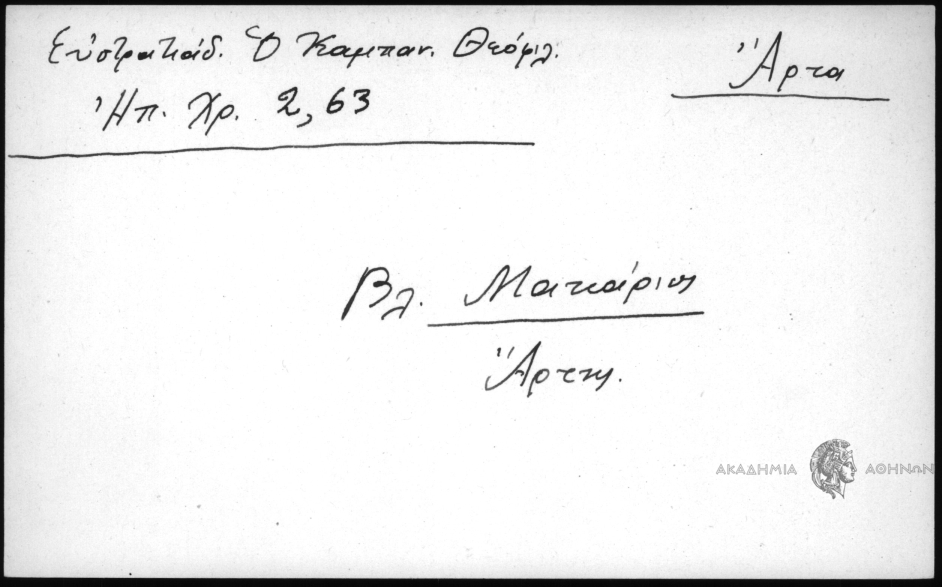 Εὐστρατιάδ. Ὁ Καμπαν. Θεόφιλ.
Ἠπ. Χρ. 2, 63
Ἄρτα
Βλ. Μακάριος
Ἄρτης.
ΑΚΑΔΗΜΙΑ ΑΘΗΝΩΝ